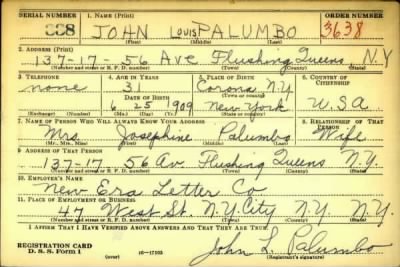 SERIAL NUMBER 1. NAME (Print) ORDER NUMBER
338 JOHN LOUIS PALUMBO 3638
(First) (Middle) (Last)
2. ADDRESS (Print)
137-17-56 Ave Flushing Queens N.Y
(Number and street or R. F. D. number) (Town) (County) (State)
3. TELEPHONE 4. AGE IN YEARS 5. PLACE OF BIRTH 6. COUNTRY OF CITIZENSHIP
none 31 Corona N.Y
DATE OF BIRTH (Town or county)
6 25 1909 New York U.S.A
(Exchange) (Number) (Mo.) (Day) (Yr.) (State or country)
7. NAME OF PERSON WHO WILL ALWAYS KNOW YOUR ADDRESS 8. RELATIONSHIP OF THAT PERSON
Mrs. Josephine Palumbo Wife
(Mr., Mrs., Miss) (First) (Middle) (Last)
9. ADDRESS OF THAT PERSON
137-17 56 Av. Flushing Queens N.Y.
(Number and street or R. F. D. number) (Town) (County) (State)
10. EMPLOYER'S NAME
New Era Letter Co
11. PLACE OF EMPLOYMENT OR BUSINESS
47 West St. N.Y. City N.Y. N.Y.
(Number and street or R. F. D. number) (Town) (County) (State)
I AFFIRM THAT I HAVE VERIFIED ABOVE ANSWERS AND THAT THEY ARE TRUE.
REGISTRATION CARD John L. Palumbo
D. S. S. Form 1 (over) (Registrant's signature)